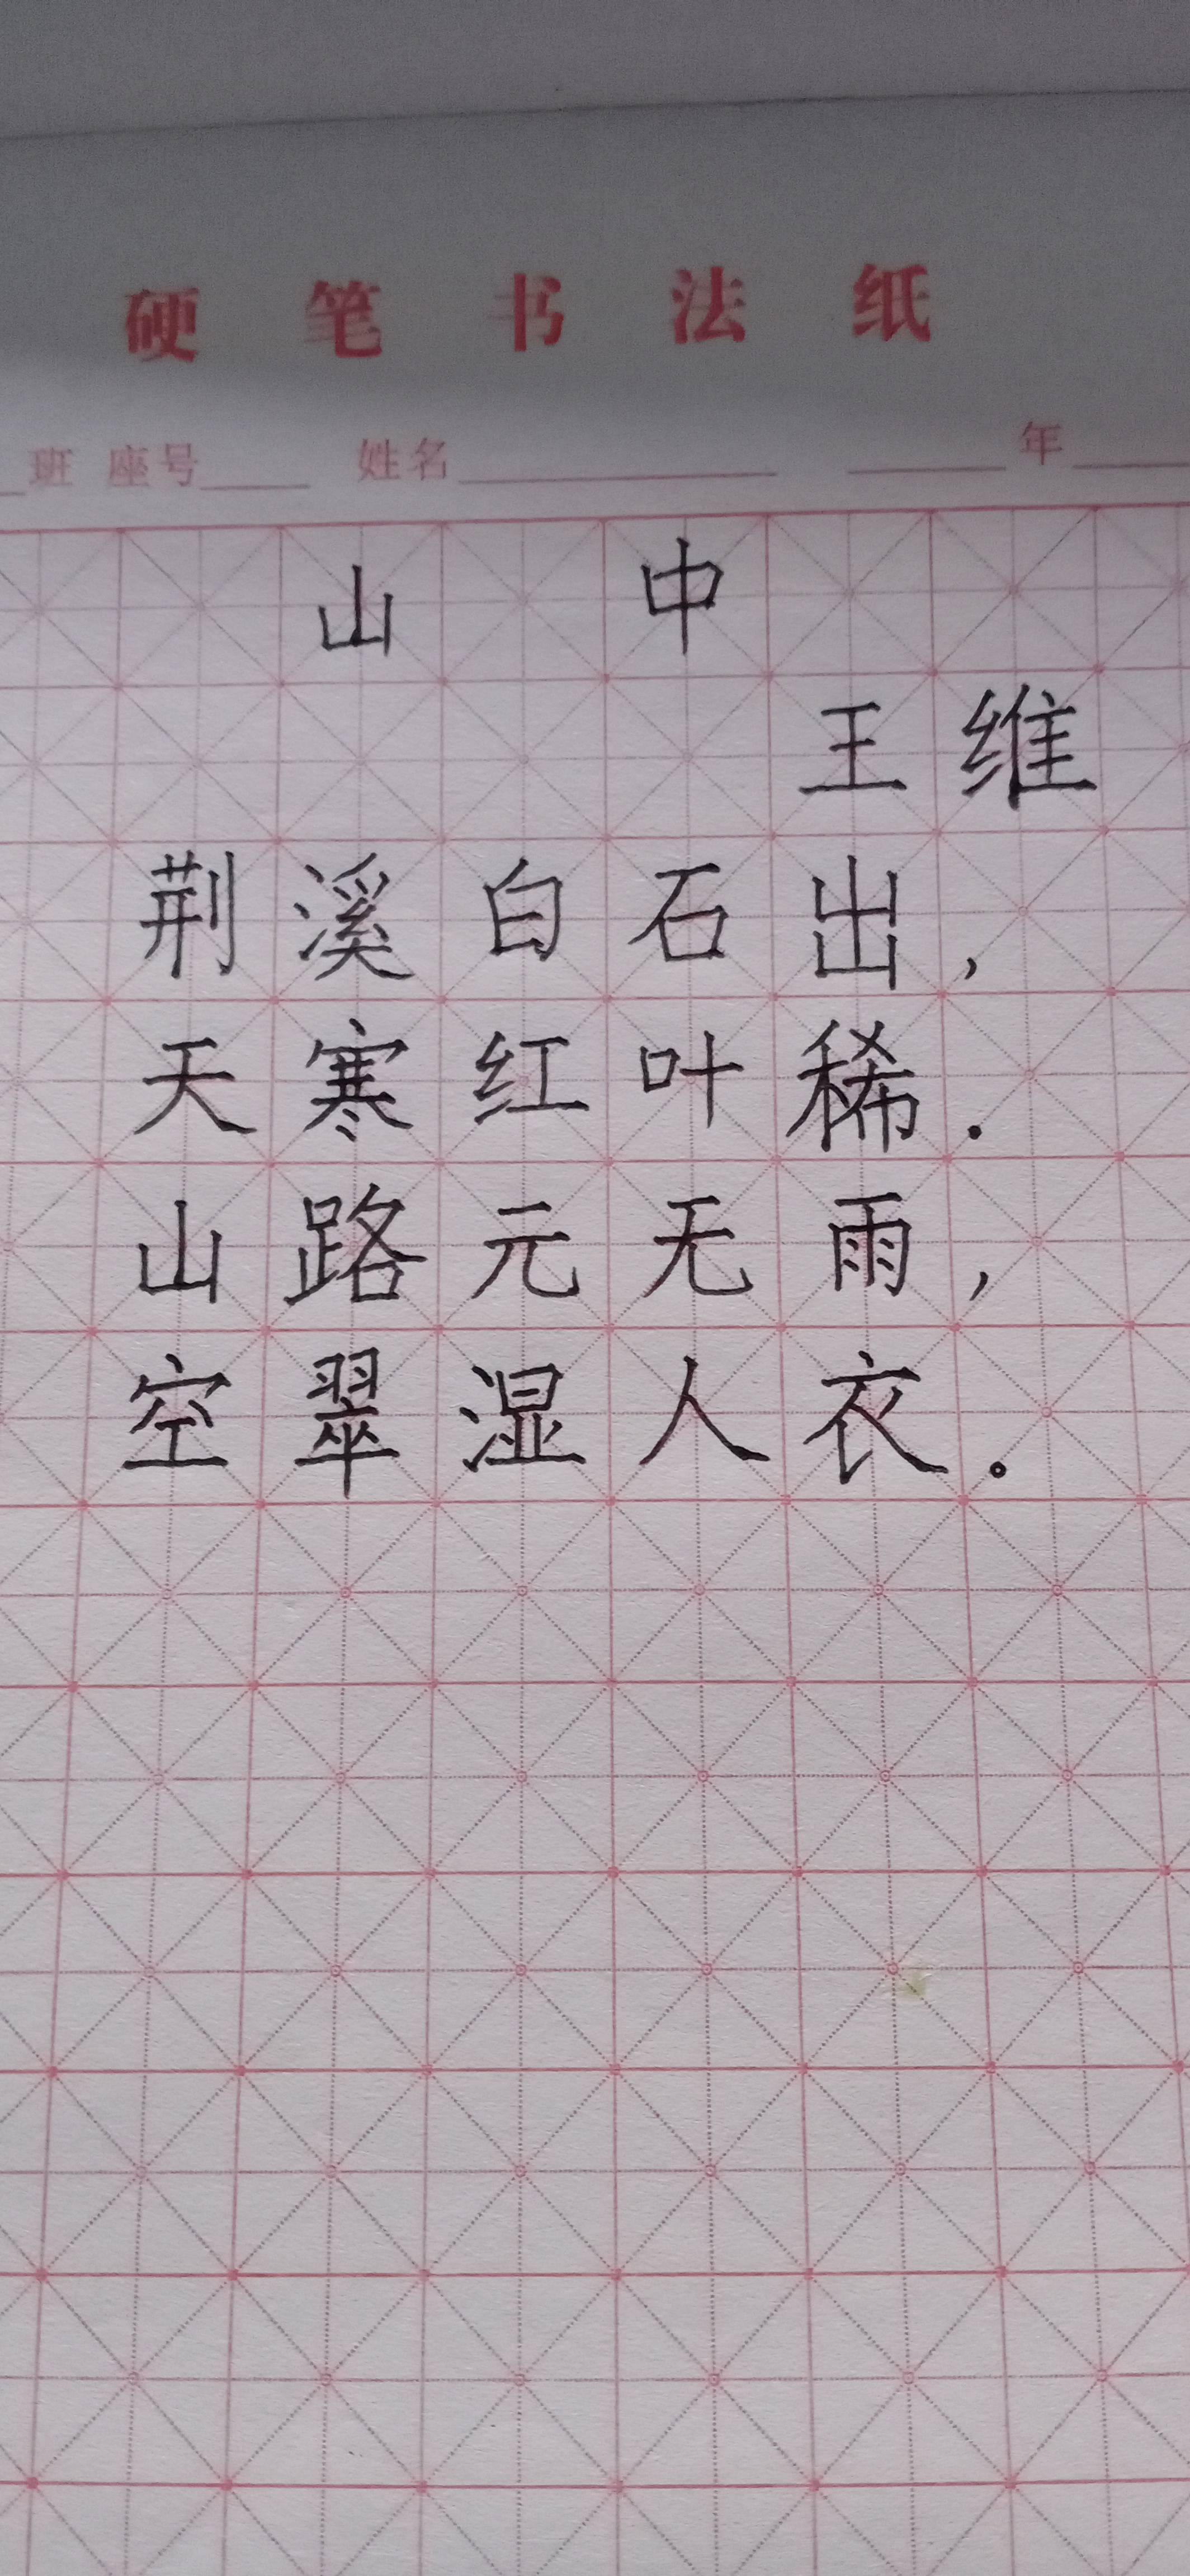 硬笔书法纸
班 座号____ 姓名____________ ______年____
山中
王维
荆溪白石出，
天寒红叶稀.
山路元无雨，
空翠湿人衣。